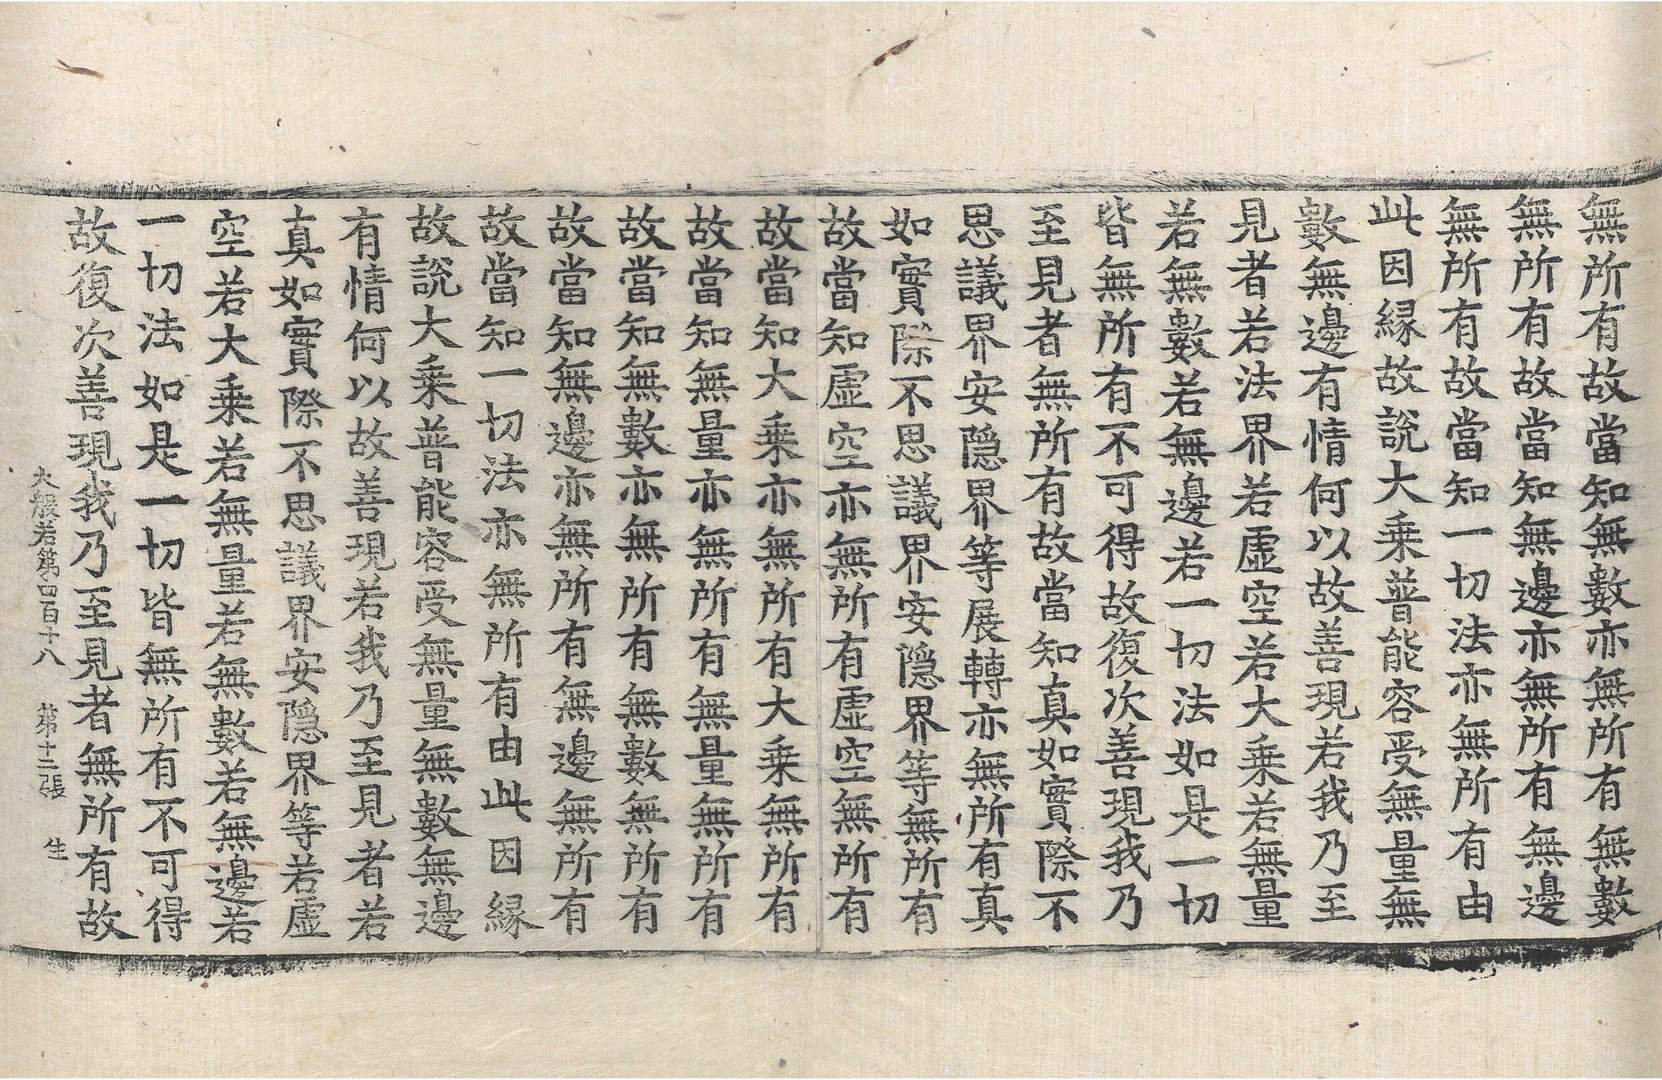 無所有故當知無數亦無所有無數
無所有故當知無邊亦無所有無邊
無所有故當知一切法亦無所有由
此因縁故說大乘普能容受無量無
數無邊有情何以故善現若我乃至
見者若法界若虛空若大乘若無量
若無數若無邊若一切法如是一切
皆無所有不可得故復次善現我乃
至見者無所有故當知真如實際不
思議界安隐界等展轉亦無所有真
如實際不思議界安隐界等無所有
故當知虛空亦無所有虛空無所有
故當知大乘亦無所有大乘無所有
故當知無量亦無所有無量無所有
故當知無數亦無所有無數無所有
故當知無邊亦無所有無邊無所有
故當知一切法亦無所有由此因縁
故說大乘普能容受無量無數無邊
有情何以故善現若我乃至見者若
真如實際不思議界安隐界等若虛
空若大乘若無量若無數若無邊若
一切法如是一切皆無所有不可得
故復次善現我乃至見者無所有故
大般若第四百十八 第十二張 生